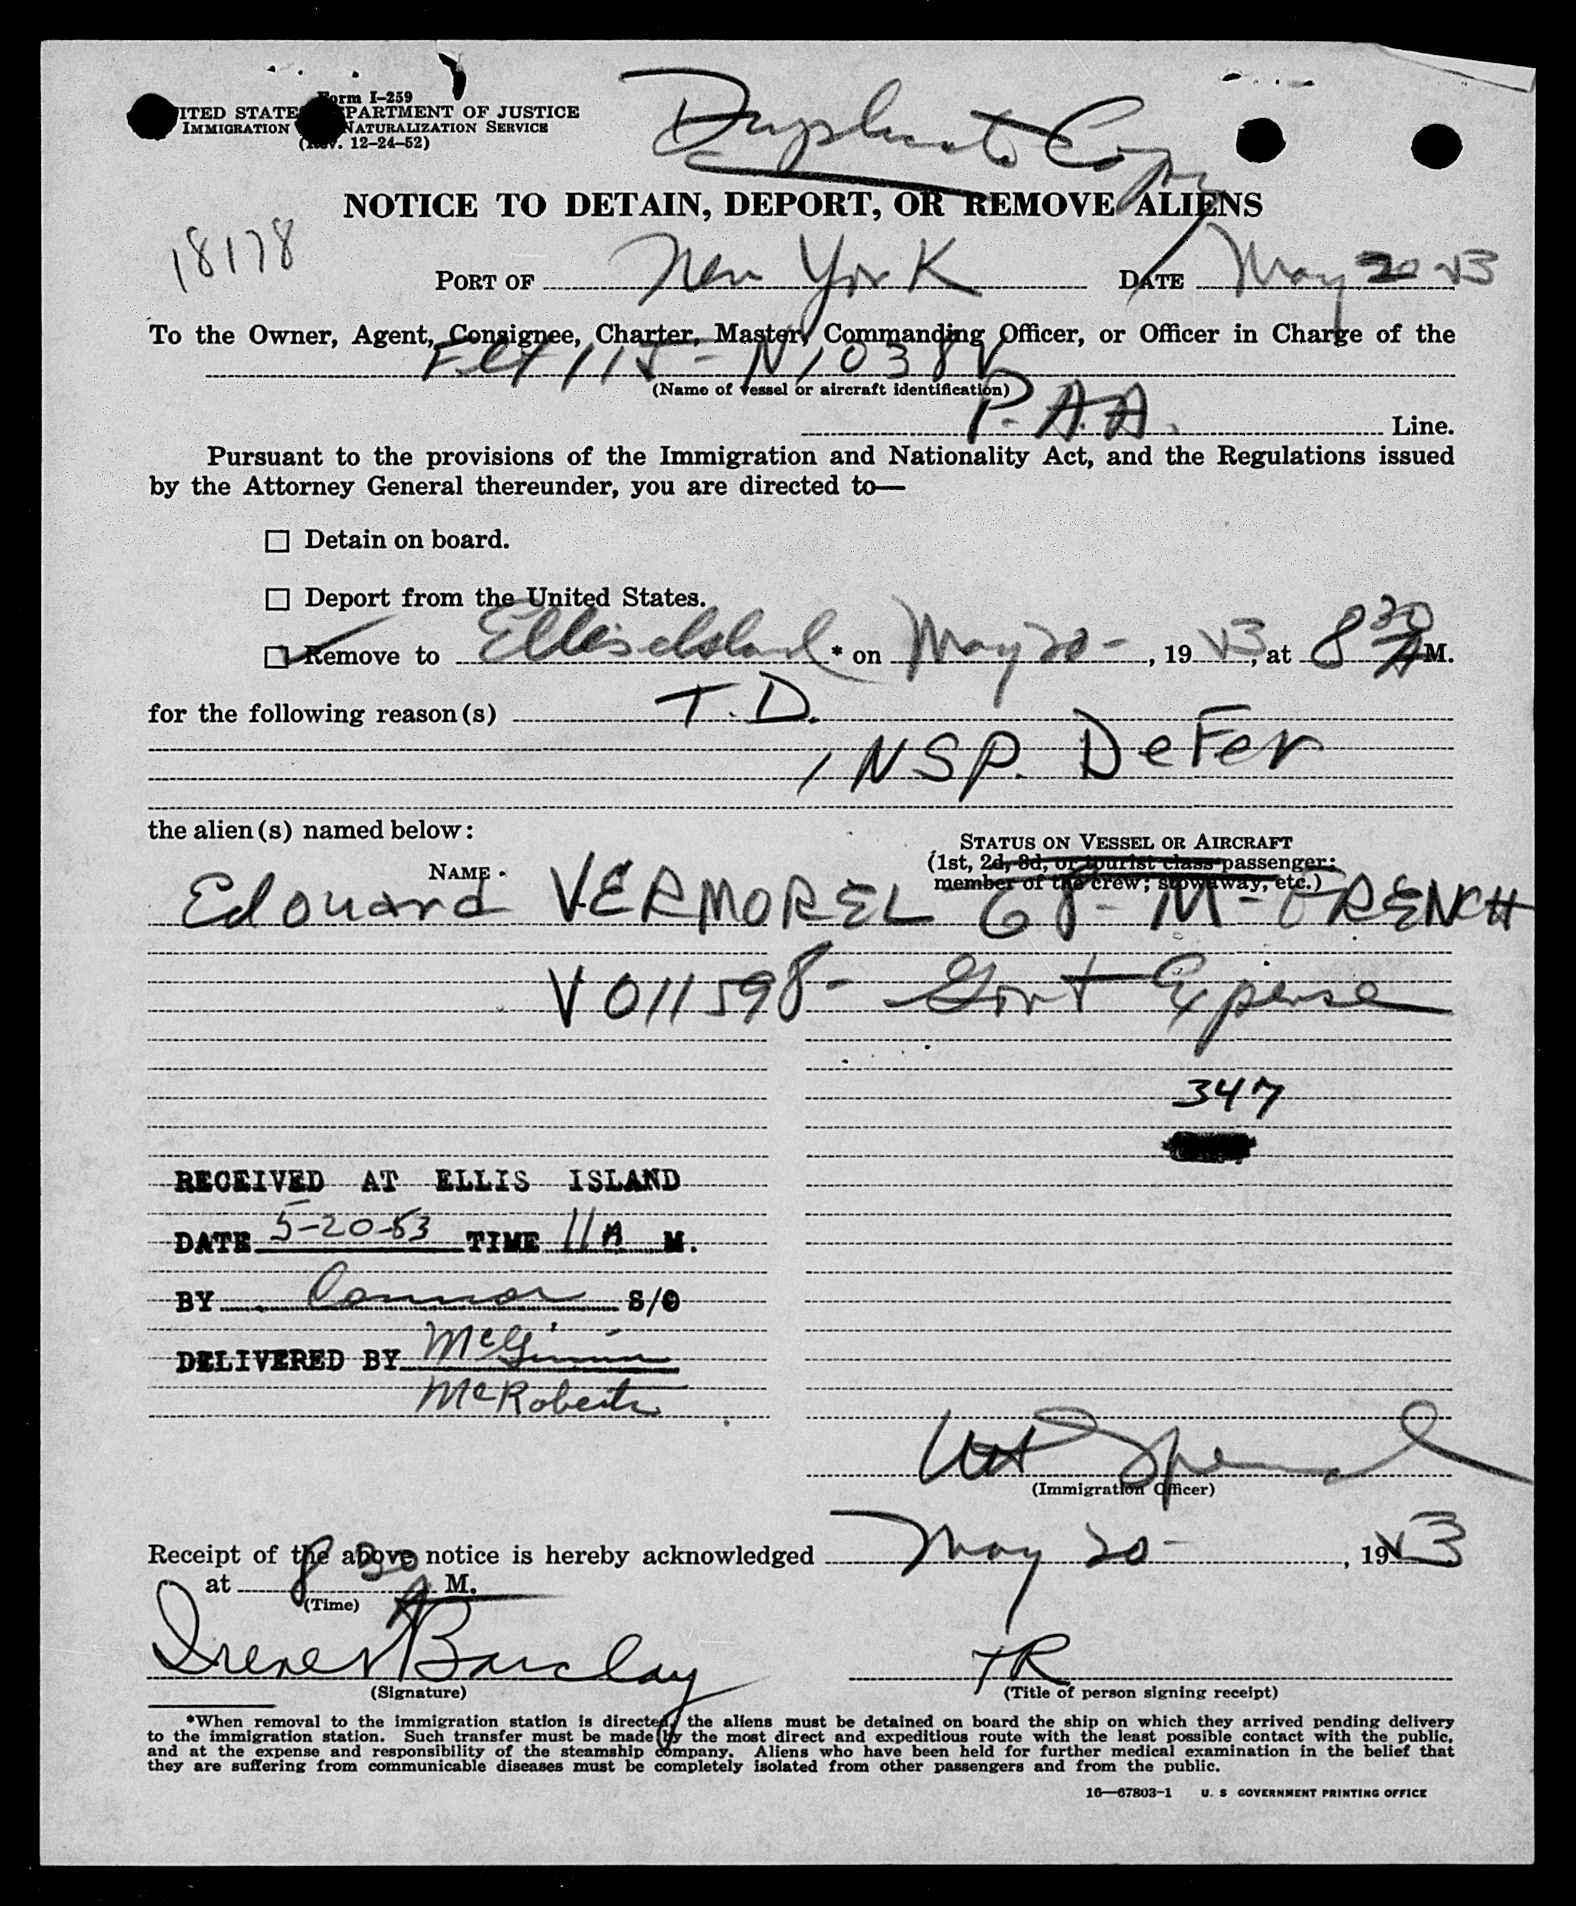 Form I-259
UNITED STATES DEPARTMENT OF JUSTICE
IMMIGRATION AND NATURALIZATION SERVICE
(Rev. 12-24-52)
Duplicate Copy
NOTICE TO DETAIN, DEPORT, OR REMOVE ALIENS
18178
PORT OF New York DATE May 20 53
To the Owner, Agent, Consignee, Charter, Master, Commanding Officer, or Officer in Charge of the
Flt 115 - N1038V
(Name of vessel or aircraft identification)
P.A.A. Line.
Pursuant to the provisions of the Immigration and Nationality Act, and the Regulations issued
by the Attorney General thereunder, you are directed to—
☐ Detain on board.
☐ Deport from the United States.
☑ Remove to Ellis Island * on May 20 - , 19 53, at 8 30 A M.
for the following reason(s) T.D.
INSP. DeFer
the alien(s) named below:
STATUS ON VESSEL OR AIRCRAFT
(1st, 2d, 3d, or tourist class passenger;
NAME
member of the crew; stowaway, etc.)
Edouard VERMOREL 68 - M - FRENCH
V011598 - Govt Expense
347
RECEIVED AT ELLIS ISLAND
DATE 5-20-53 TIME 11 A M.
BY Connor S/O
DELIVERED BY McGinnis
McRoberts
Spencer
(Immigration Officer)
Receipt of the above notice is hereby acknowledged May 20 - , 19 53
at 8 30 A M.
(Time)
Irene Barclay TR
(Signature) (Title of person signing receipt)
*When removal to the immigration station is directed, the aliens must be detained on board the ship on which they arrived pending delivery
to the immigration station. Such transfer must be made by the most direct and expeditious route with the least possible contact with the public,
and at the expense and responsibility of the steamship company. Aliens who have been held for further medical examination in the belief that
they are suffering from communicable diseases must be completely isolated from other passengers and from the public.
16—67803-1 U. S GOVERNMENT PRINTING OFFICE